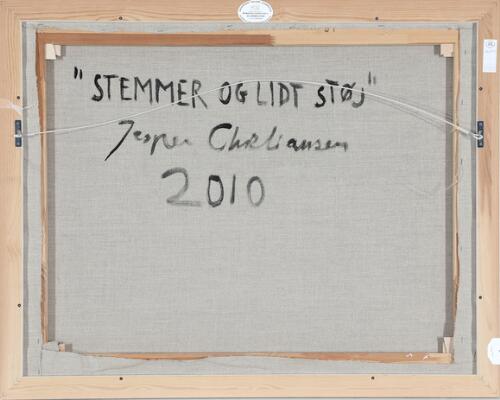 "STEMMER OG LIDT STØJ"
Jesper Christiansen
2010